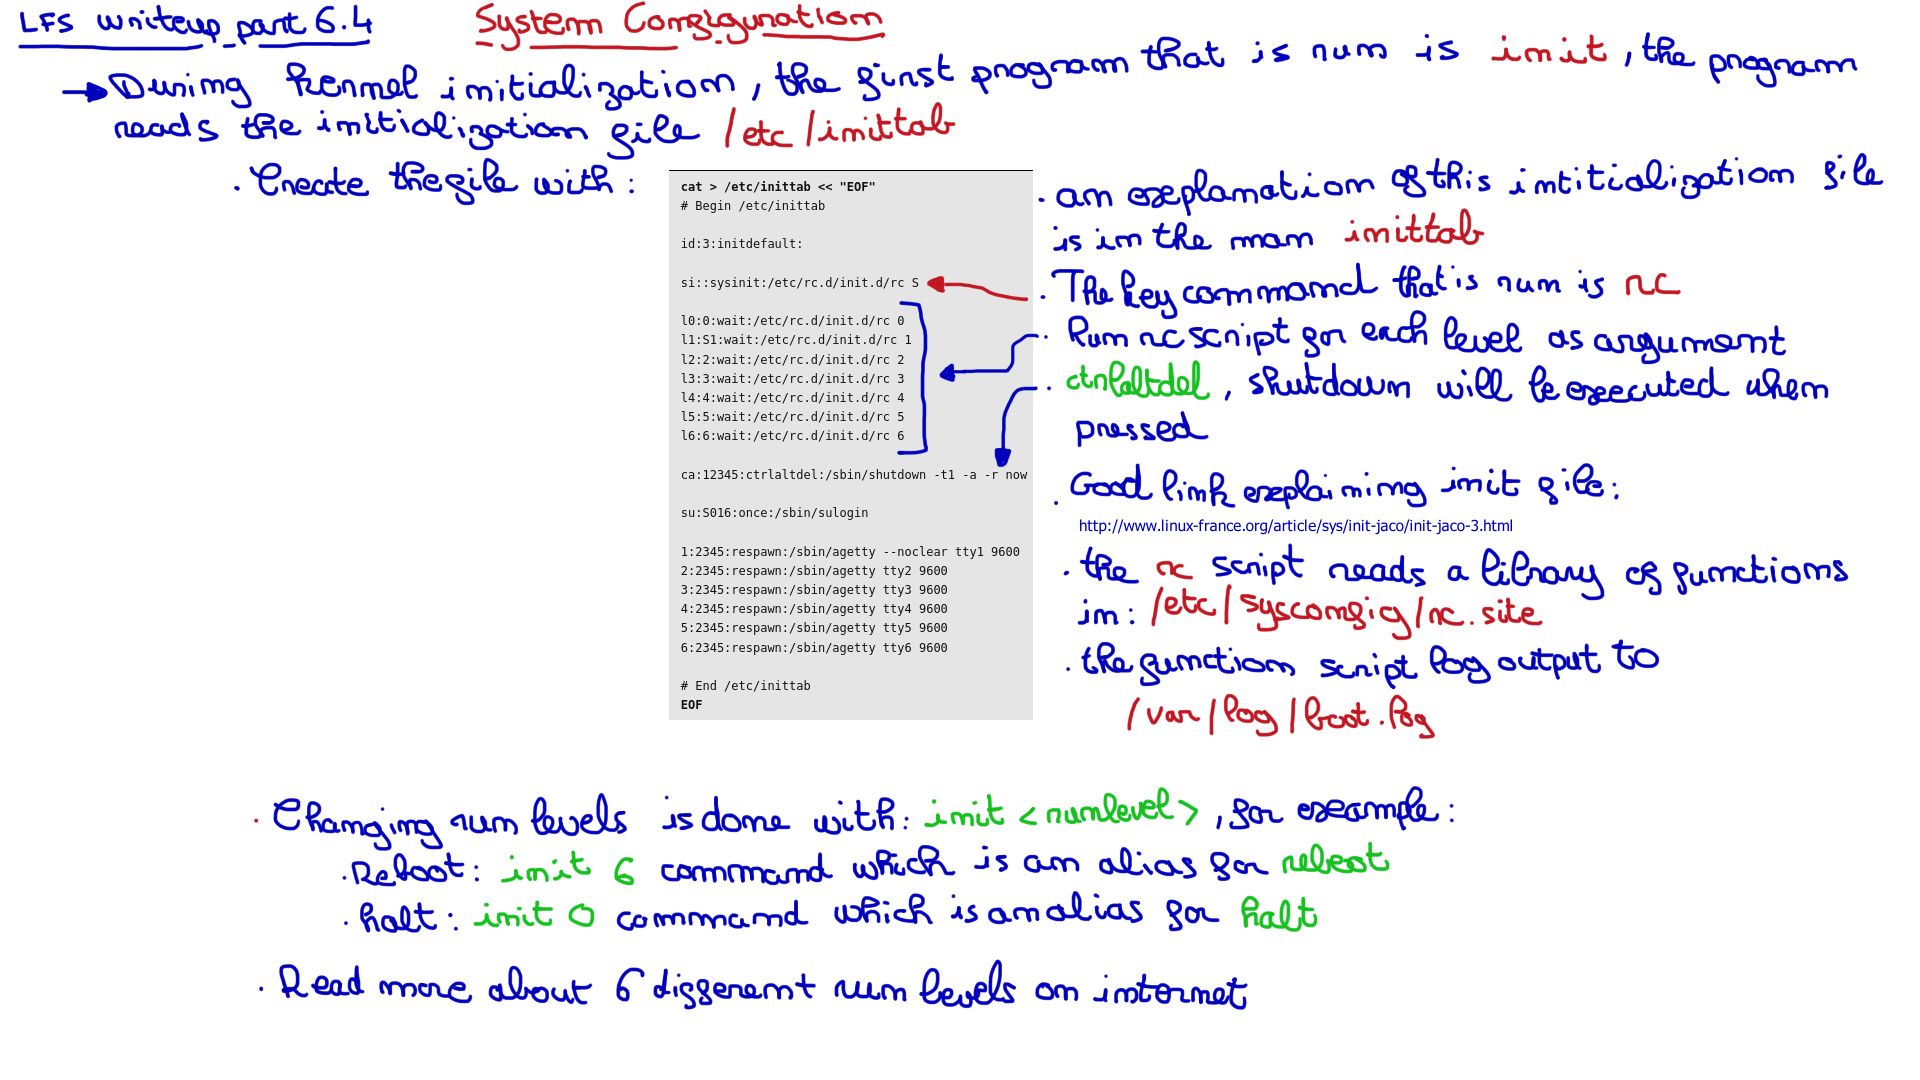 LFS writeup part 6.4 System Configuration
During kernel initialization, the first program that is run is init, the program
reads the initialization file /etc/inittab
. Create the file with:
cat > /etc/inittab << "EOF"
# Begin /etc/inittab
id:3:initdefault:
si::sysinit:/etc/rc.d/init.d/rc S
l0:0:wait:/etc/rc.d/init.d/rc 0
l1:S1:wait:/etc/rc.d/init.d/rc 1
l2:2:wait:/etc/rc.d/init.d/rc 2
l3:3:wait:/etc/rc.d/init.d/rc 3
l4:4:wait:/etc/rc.d/init.d/rc 4
l5:5:wait:/etc/rc.d/init.d/rc 5
l6:6:wait:/etc/rc.d/init.d/rc 6
ca:12345:ctrlaltdel:/sbin/shutdown -t1 -a -r now
su:S016:once:/sbin/sulogin
1:2345:respawn:/sbin/agetty --noclear tty1 9600
2:2345:respawn:/sbin/agetty tty2 9600
3:2345:respawn:/sbin/agetty tty3 9600
4:2345:respawn:/sbin/agetty tty4 9600
5:2345:respawn:/sbin/agetty tty5 9600
6:2345:respawn:/sbin/agetty tty6 9600
# End /etc/inittab
EOF
. an explanation of this intitialization file
is in the man inittab
. The key command that is run is rc
. Run rc script for each level as argument
. ctrlaltdel, shutdown will be executed when
pressed
. Good link explaining init file:
http://www.linux-france.org/article/sys/init-jaco/init-jaco-3.html
. the rc script reads a library of functions
in: /etc/sysconfig/rc.site
. the function script log output to
/var/log/boot.log
. Changing run levels is done with: init <runlevel>, for example:
. Reboot: init 6 command which is an alias for reboot
. halt: init 0 command which is an alias for halt
. Read more about 6 different run levels on internet